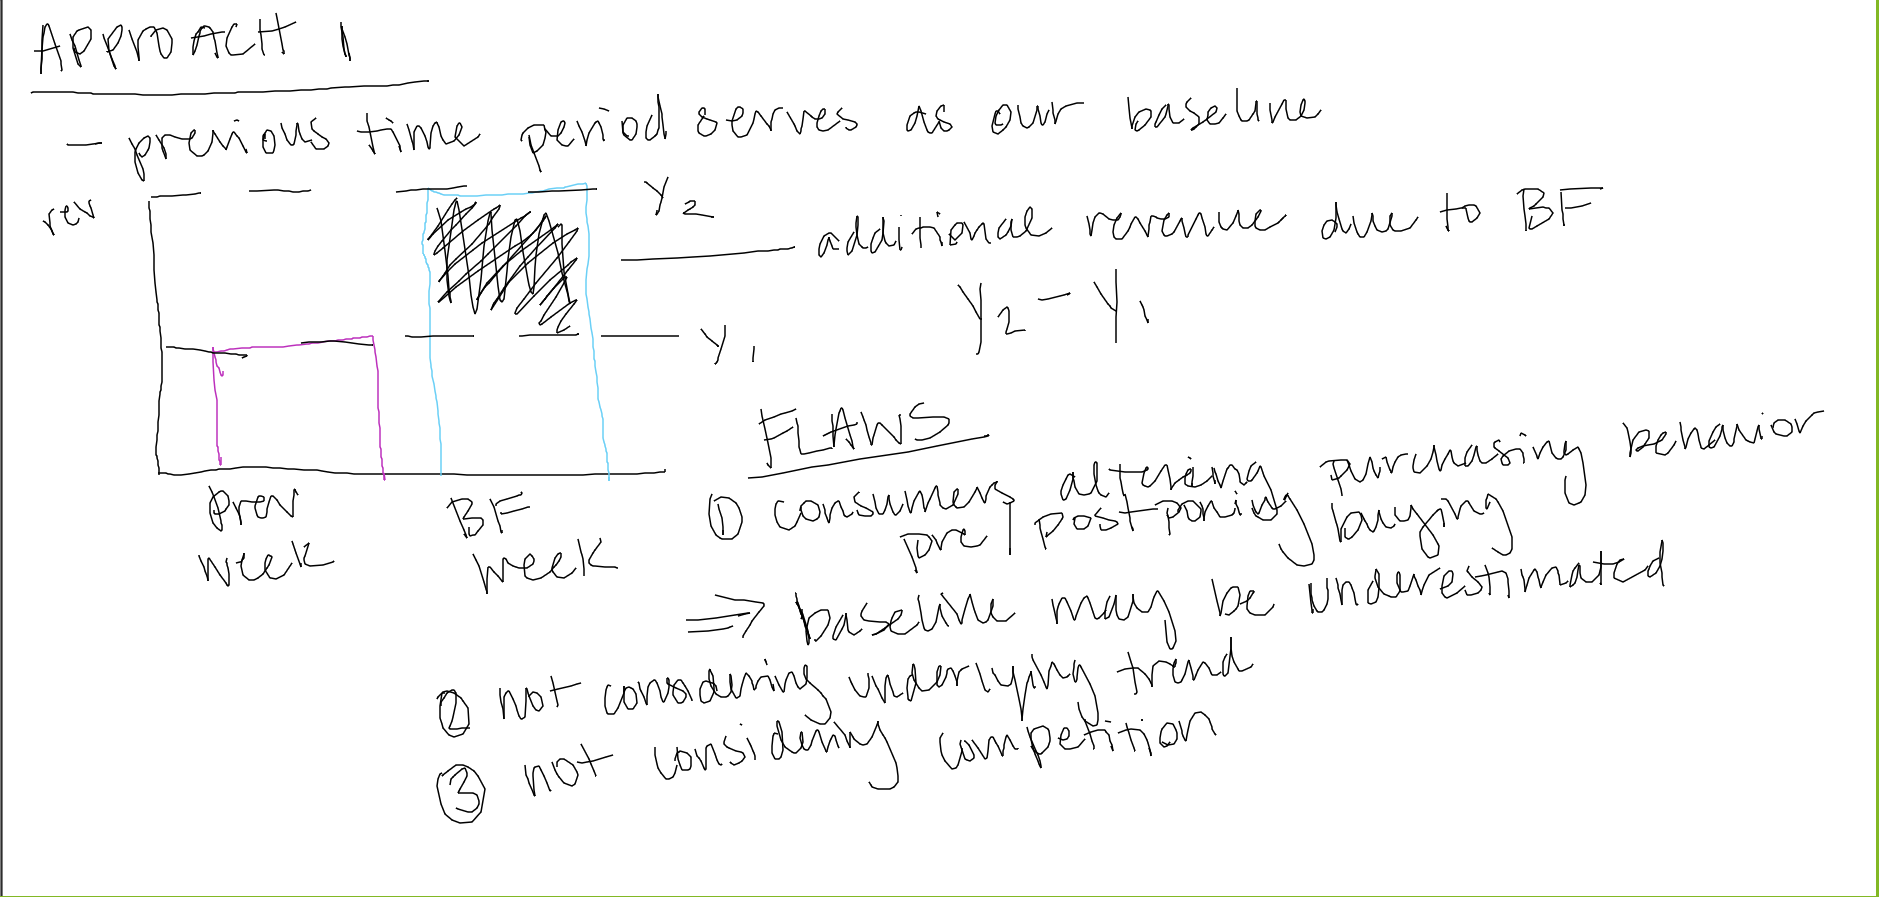 APPROACH 1
- previous time period serves as our baseline
rev
Y2
additional revenue due to BF
Y2 - Y1
Y1
prev
week
BF
week
FLAWS
① consumers altering purchasing behavior
pre/postponing buying
⇒ baseline may be underestimated
② not considering underlying trend
③ not considering competition